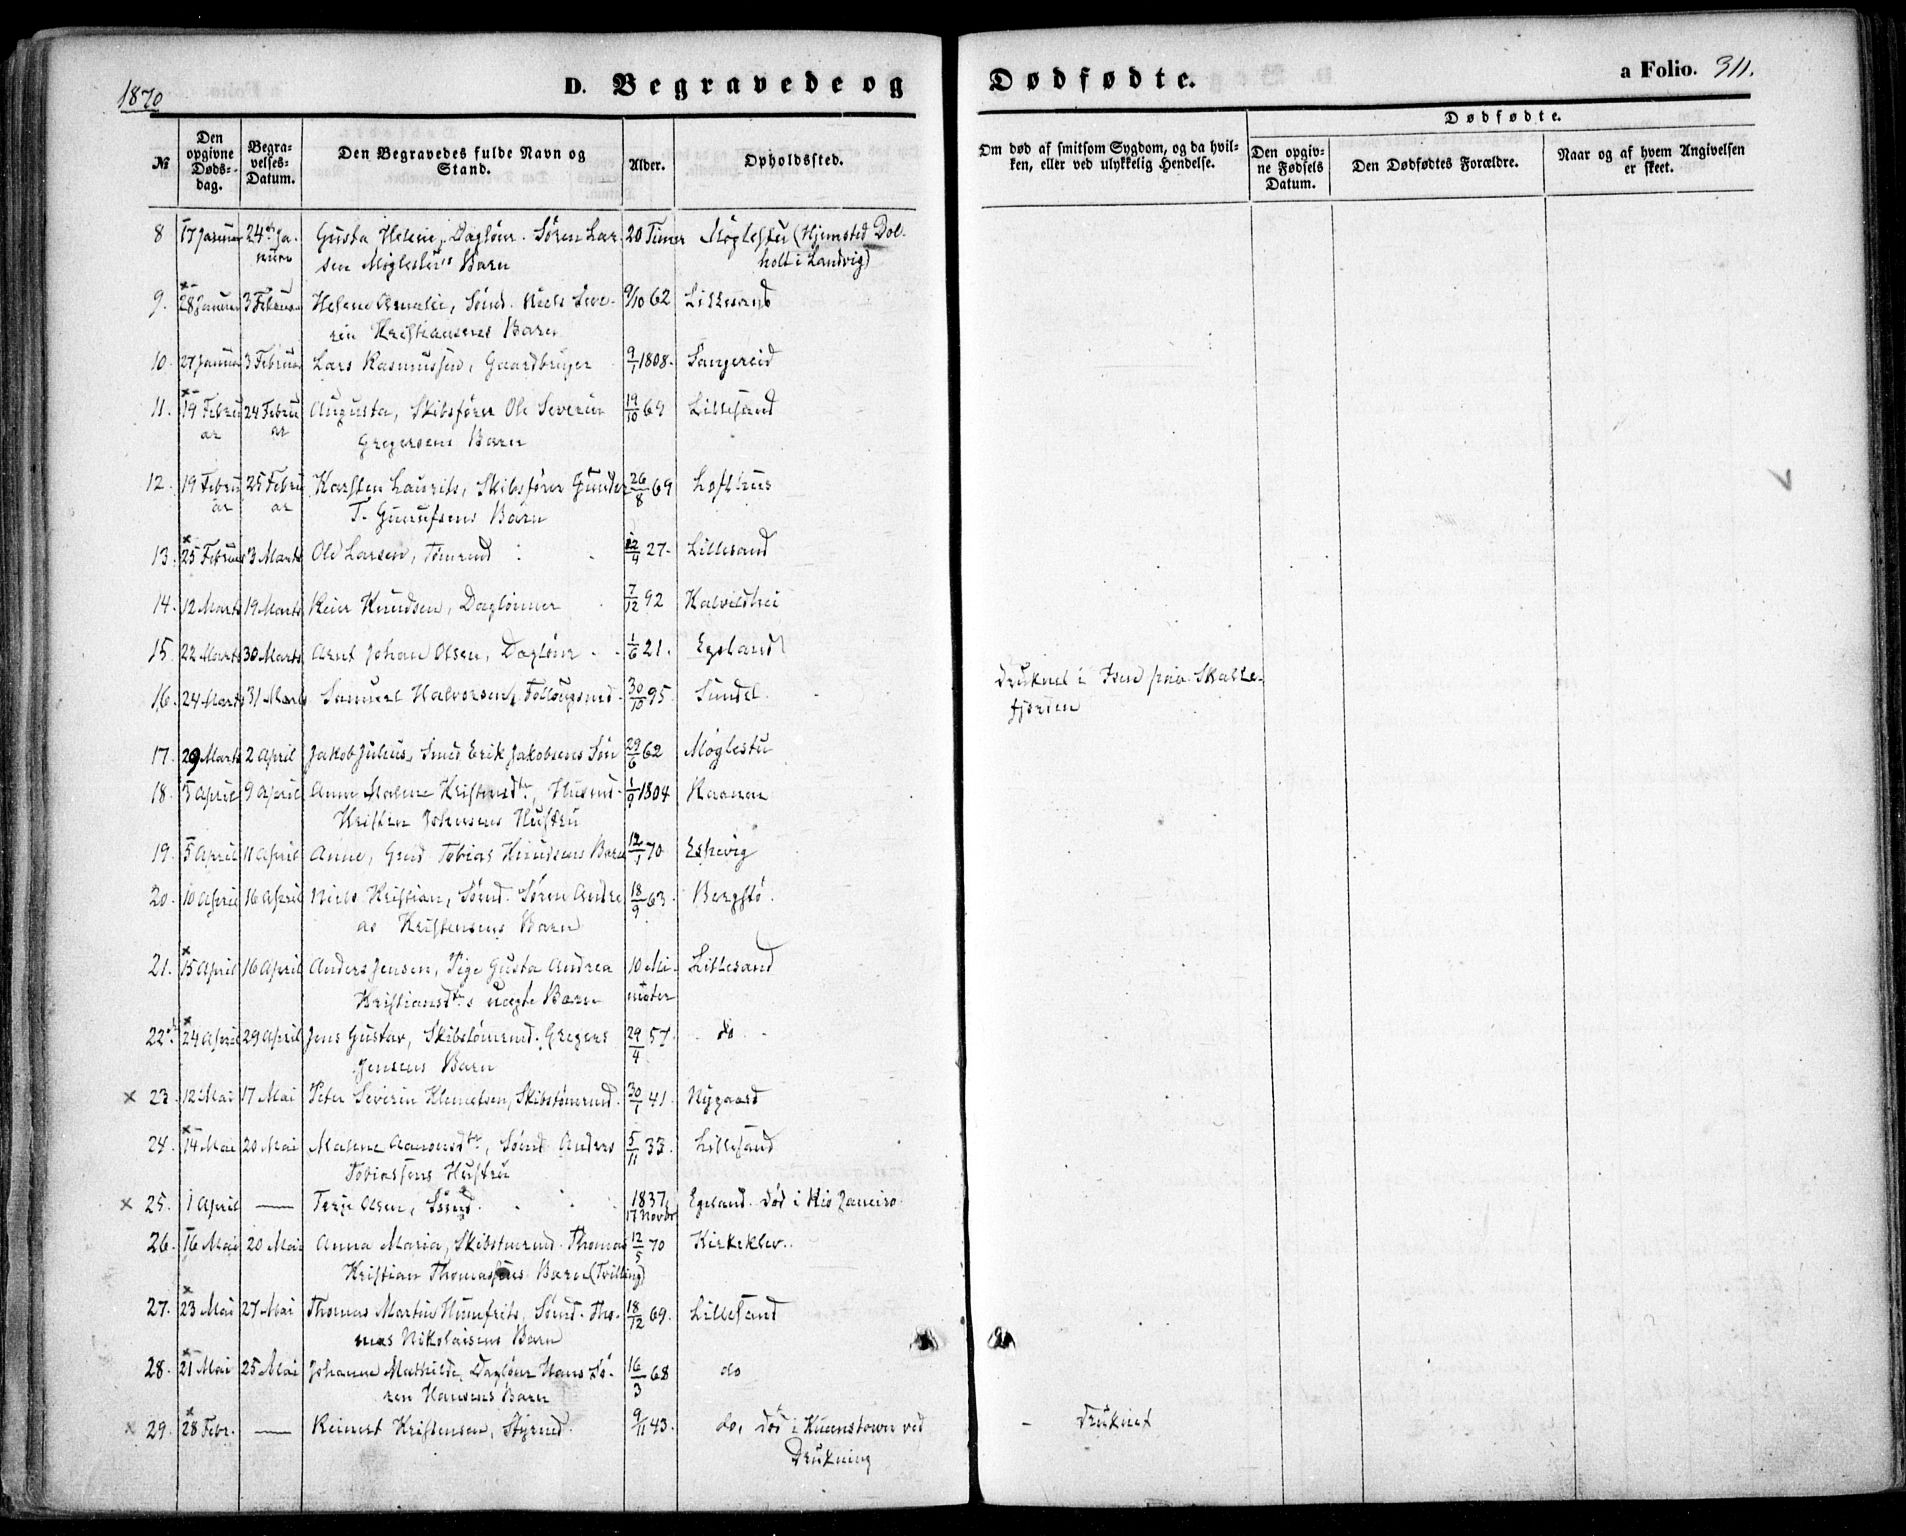 1870
D. Begravede og Dødfødte.
a Folio. 311.
№
Den opgivne Døds-dag.
Begra-velses-Datum.
Den Begravedes fulde Navn og Stand.
Alder.
Opholdssted.
Om død af smitsom Sygdom, og da hvil-ken, eller ved ulykkelig Hendelse.
Dødfødte.
Den opgiv-ne Fødsels Datum.
Den Dødfødtes Forældre.
Naar og af hvem Angivelsen er skeet.
8 17 Januar 24de Ja- Gusta Helene, Dagløn. Søren Lar- 20 Timer Møglestu (Hjemsted Dol-
nuar sen Møglestu's Barn holt i Landvig)
9. 28 Januar 3 Februar Helene Amalie, Sømd. Niels Seve- 9/10 62 Lillesand
rin Kristiansens Barn
10. 27 Januar 3 Februar Lars Rasmussen, Gaardbruger 9/1 1808. Sangereid
11. 19 Febru 24 Febru Augusta, Skibsfører Ole Severin 19/10 69 Lillesand
ar ar Gregersens Barn
12. 19 Febru 25 Febru Karsten Laurits, Skibsfører Gunder 26/8 69 Lofthus
ar ar T. Gunufsens Barn
13. 25 Februar 3 Marts Ole Larsen, Tømmd 12/4 27. Lillesand
14. 12 Marts 19 Marts Reier Knudsen, Daglønner 7/12 92 Kalvildhei
15. 22 Marts 30 Marts Arnt Johan Olsen, Dagløn 1/6 21. Egeland
16. 24 Marts 31 Marts Samuel Halvorsen, Follougsmd. 30/10 95. Sundel. Druknet i Isen paa Skalle-
fjorden
17. 29 Marts 2 April Jakob Julius, Smed Erik Jakobsens Søn 29/6 62 Møglestu
18. 5 April 9 April Anne Malene Kristensdtr, Husmd 1/9 1804
Kristen Johnsens Hustru
19. 5 April 11 April Anne, Gmd Tobias Knudsens Barn 12/1 70 Eskevig
20. 10 April 16 April Niels Kristian, Sømd. Søren Andre 18/9 63. Bergstø.
as Kristensens Barn
21. 15 April 16 April Anders Jensen, Pige Gusta Andrea 10 Mi- Lillesand
Kristiansdtr's uægte Barn nuter
22. 24 April 29 April Jens Gustav, Skibstømmd. Gregers 29/4 57. do
Jensens Barn
× 23. 12 Mai 17 Mai Peter Severin Klemetsen, Skibstømmd. 30/1 41. Nygaard
24. 14 Mai 20 Mai Malene Aanonsdtr, Sømd. Anders 5/11 33. Lillesand
Tobiassens Hustru
× 25. 1 April — Terje Olsen, Sømd. 1837, 17 Novbr Egeland. død i Rio Janeiro.
26. 16 Mai 20 Mai Anna Maria, Skibstmmd. Thomas 12/5 70 Kirkeklev.
Kristian Thomassens Barn (Tvilling)
27. 23 Mai 27 Mai Thomas Martin Humfrits, Sømd. Tho- 18/12 69. Lillesand
mas Nikolaisens Barn
28. 21 Mai 25 Mai Johanne Mathilde, Dagløn Hans Sø- 16/3 68 do
ren Hansens Barn
× 29. 28 Febr. — Reinert Kristensen, Styrmd. 9/11 43. do, død i Kueenstown ved – Druknet
Drukning